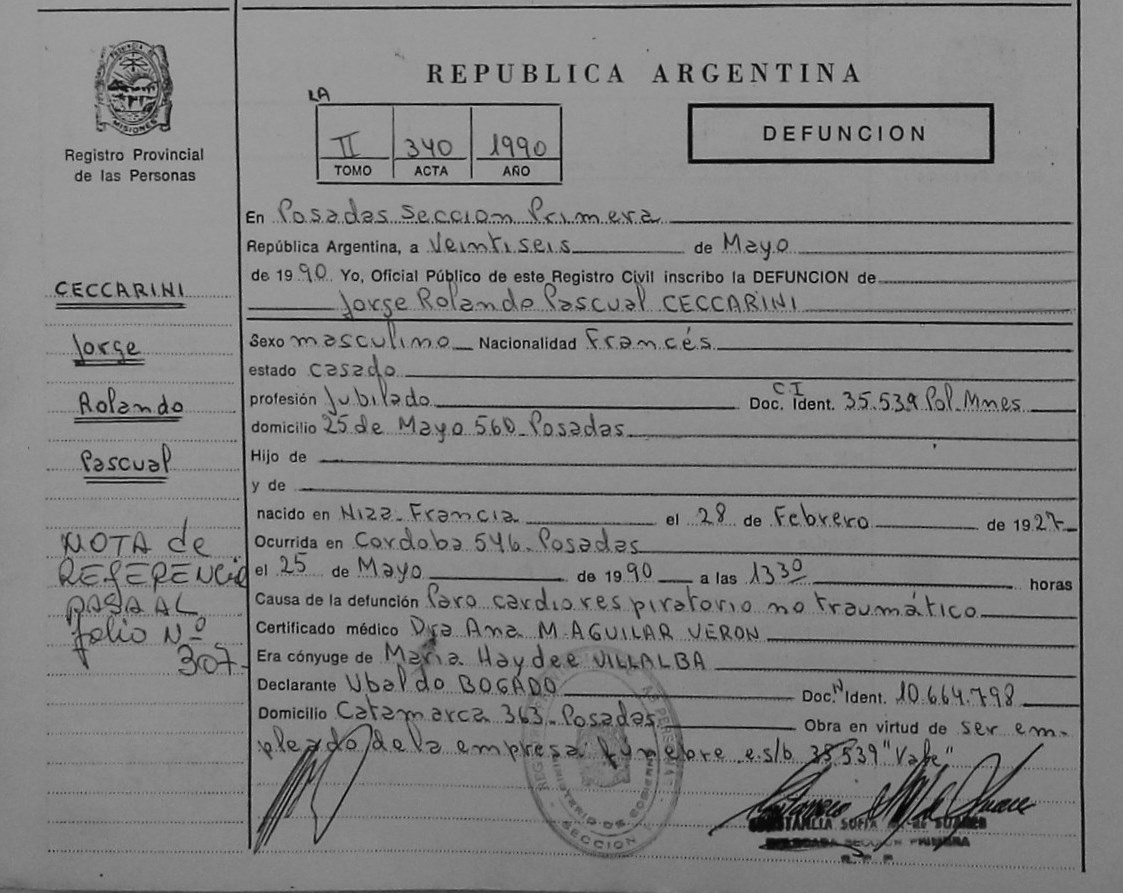 PROVINCIA DE
MISIONES
Registro Provincial
de las Personas
CECCARINI
Jorge
Rolando
Pascual
NOTA de
REFERENCIA
PASA AL
folio Nº
307-
REPUBLICA ARGENTINA
LA
II 340 1990
TOMO ACTA AÑO
DEFUNCION
En Posadas Seccion Primera
República Argentina, a Veintiseis de Mayo
de 1990 Yo, Oficial Público de este Registro Civil inscribo la DEFUNCION de
Jorge Rolando Pascual CECCARINI
Sexo masculino Nacionalidad Francés
estado casado
C I
profesión Jubilado Doc. Ident. 35.539 Pol. Mnes
domicilio 25 de Mayo 560 Posadas
Hijo de
y de
nacido en Niza-Francia el 28 de Febrero de 1927
Ocurrida en Cordoba 546- Posadas
el 25 de Mayo de 1990 a las 13 30 horas
Causa de la defunción Paro cardiorespiratorio no traumático
Certificado médico Dra Ana M. AGUILAR VERON
Era cónyuge de Maria Haydee VILLALBA
Declarante Ubaldo BOGADO Doc. N Ident. 10.664.798
Domicilio Catamarca 363- Posadas Obra en virtud de ser em-
pleado de la empresa funebre e.s/b 35539 "Vale"
MINISTERIO DE GOBIERNO
SECCION 1
CONSTANCIA SOFIA DE SUAREZ
DELEGADA SECCION PRIMERA
R. P. P.